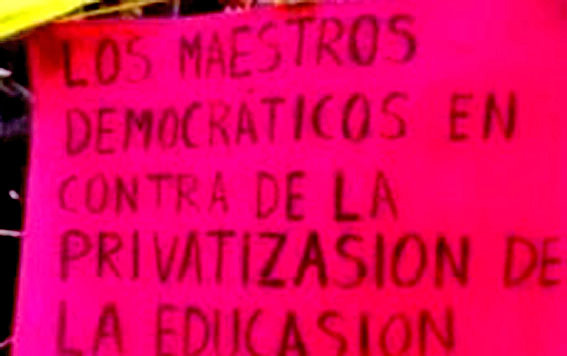 LOS MAESTROS
DEMOCRÁTICOS EN
CONTRA DE LA
PRIVATIZASION DE
LA EDUCASION